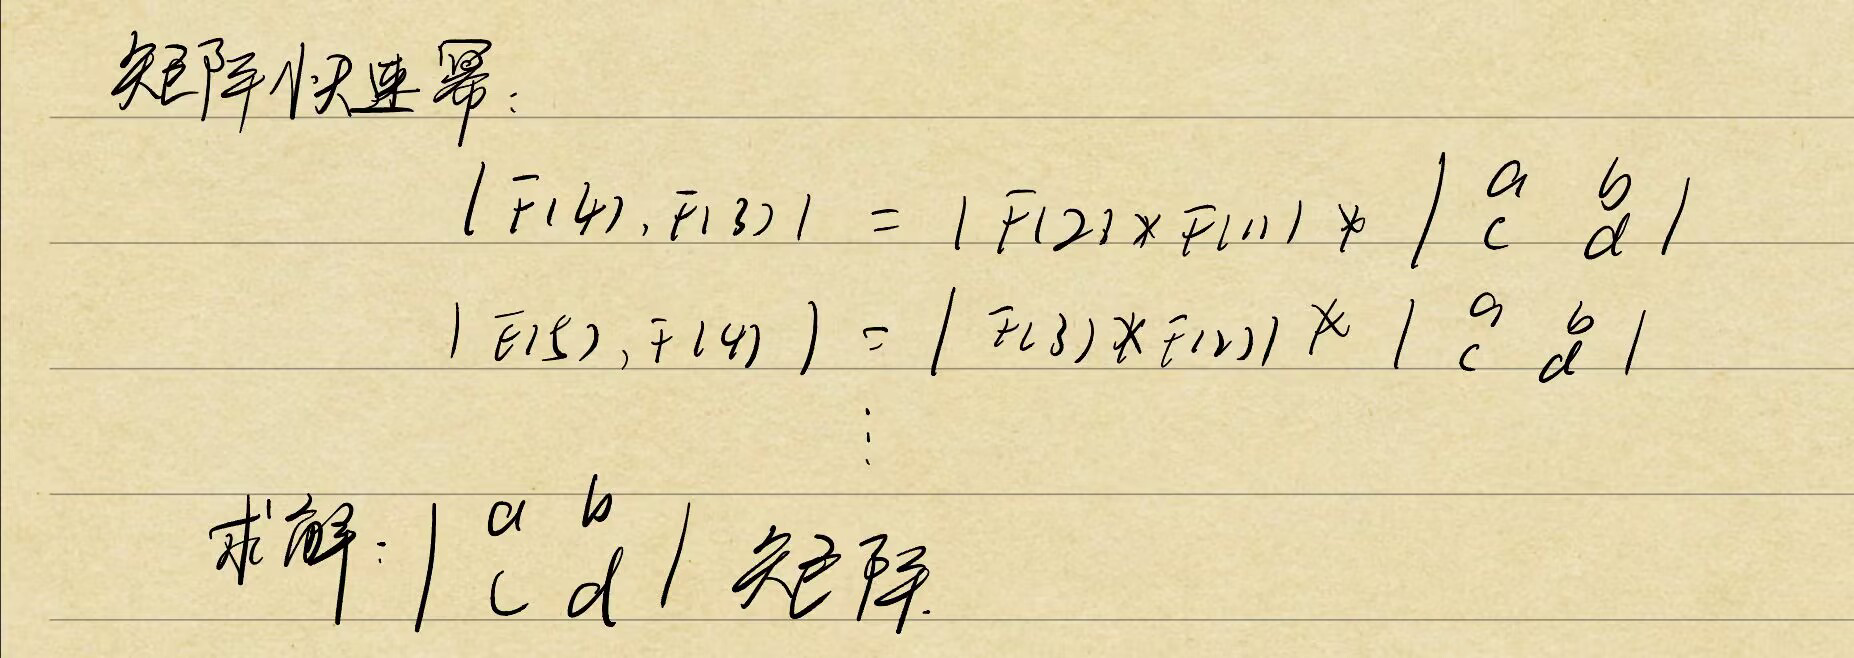 矩阵快速幂:
|F(4),F(3)| = |F(2)*F(1)| * | a b
c d |
|F(5),F(4)| = |F(3)*F(2)| * | a b
c d |
⋮
求解:| a b
c d | 矩阵.